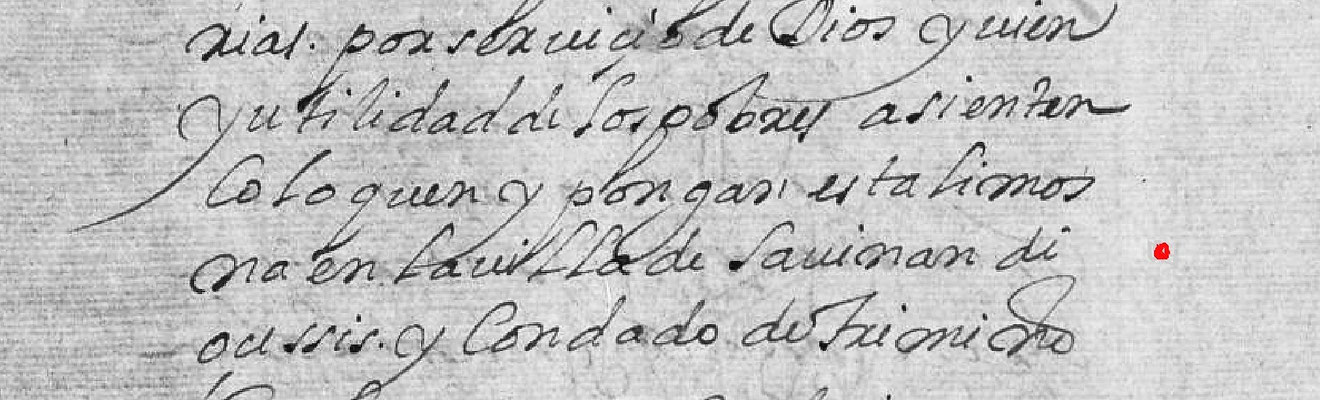 rias. por seruiçio de Dios y uien
y utilidad de los pobres asienten
Coloquen y pongan esta limos
na en la uilla de Sauinan di
oussis. y Condado de trimiño